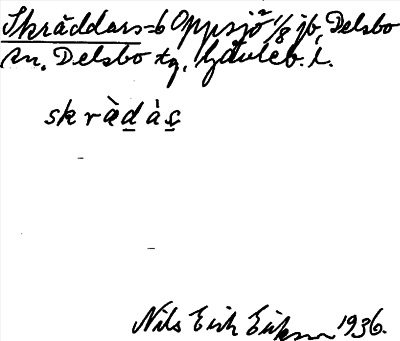 Skräddars = b Oppsjö² 1/8 jb, Delsbo
sn. Delsbo tg. Gävleb. l.
skrädàs
Nils Erik Erikson 1936.